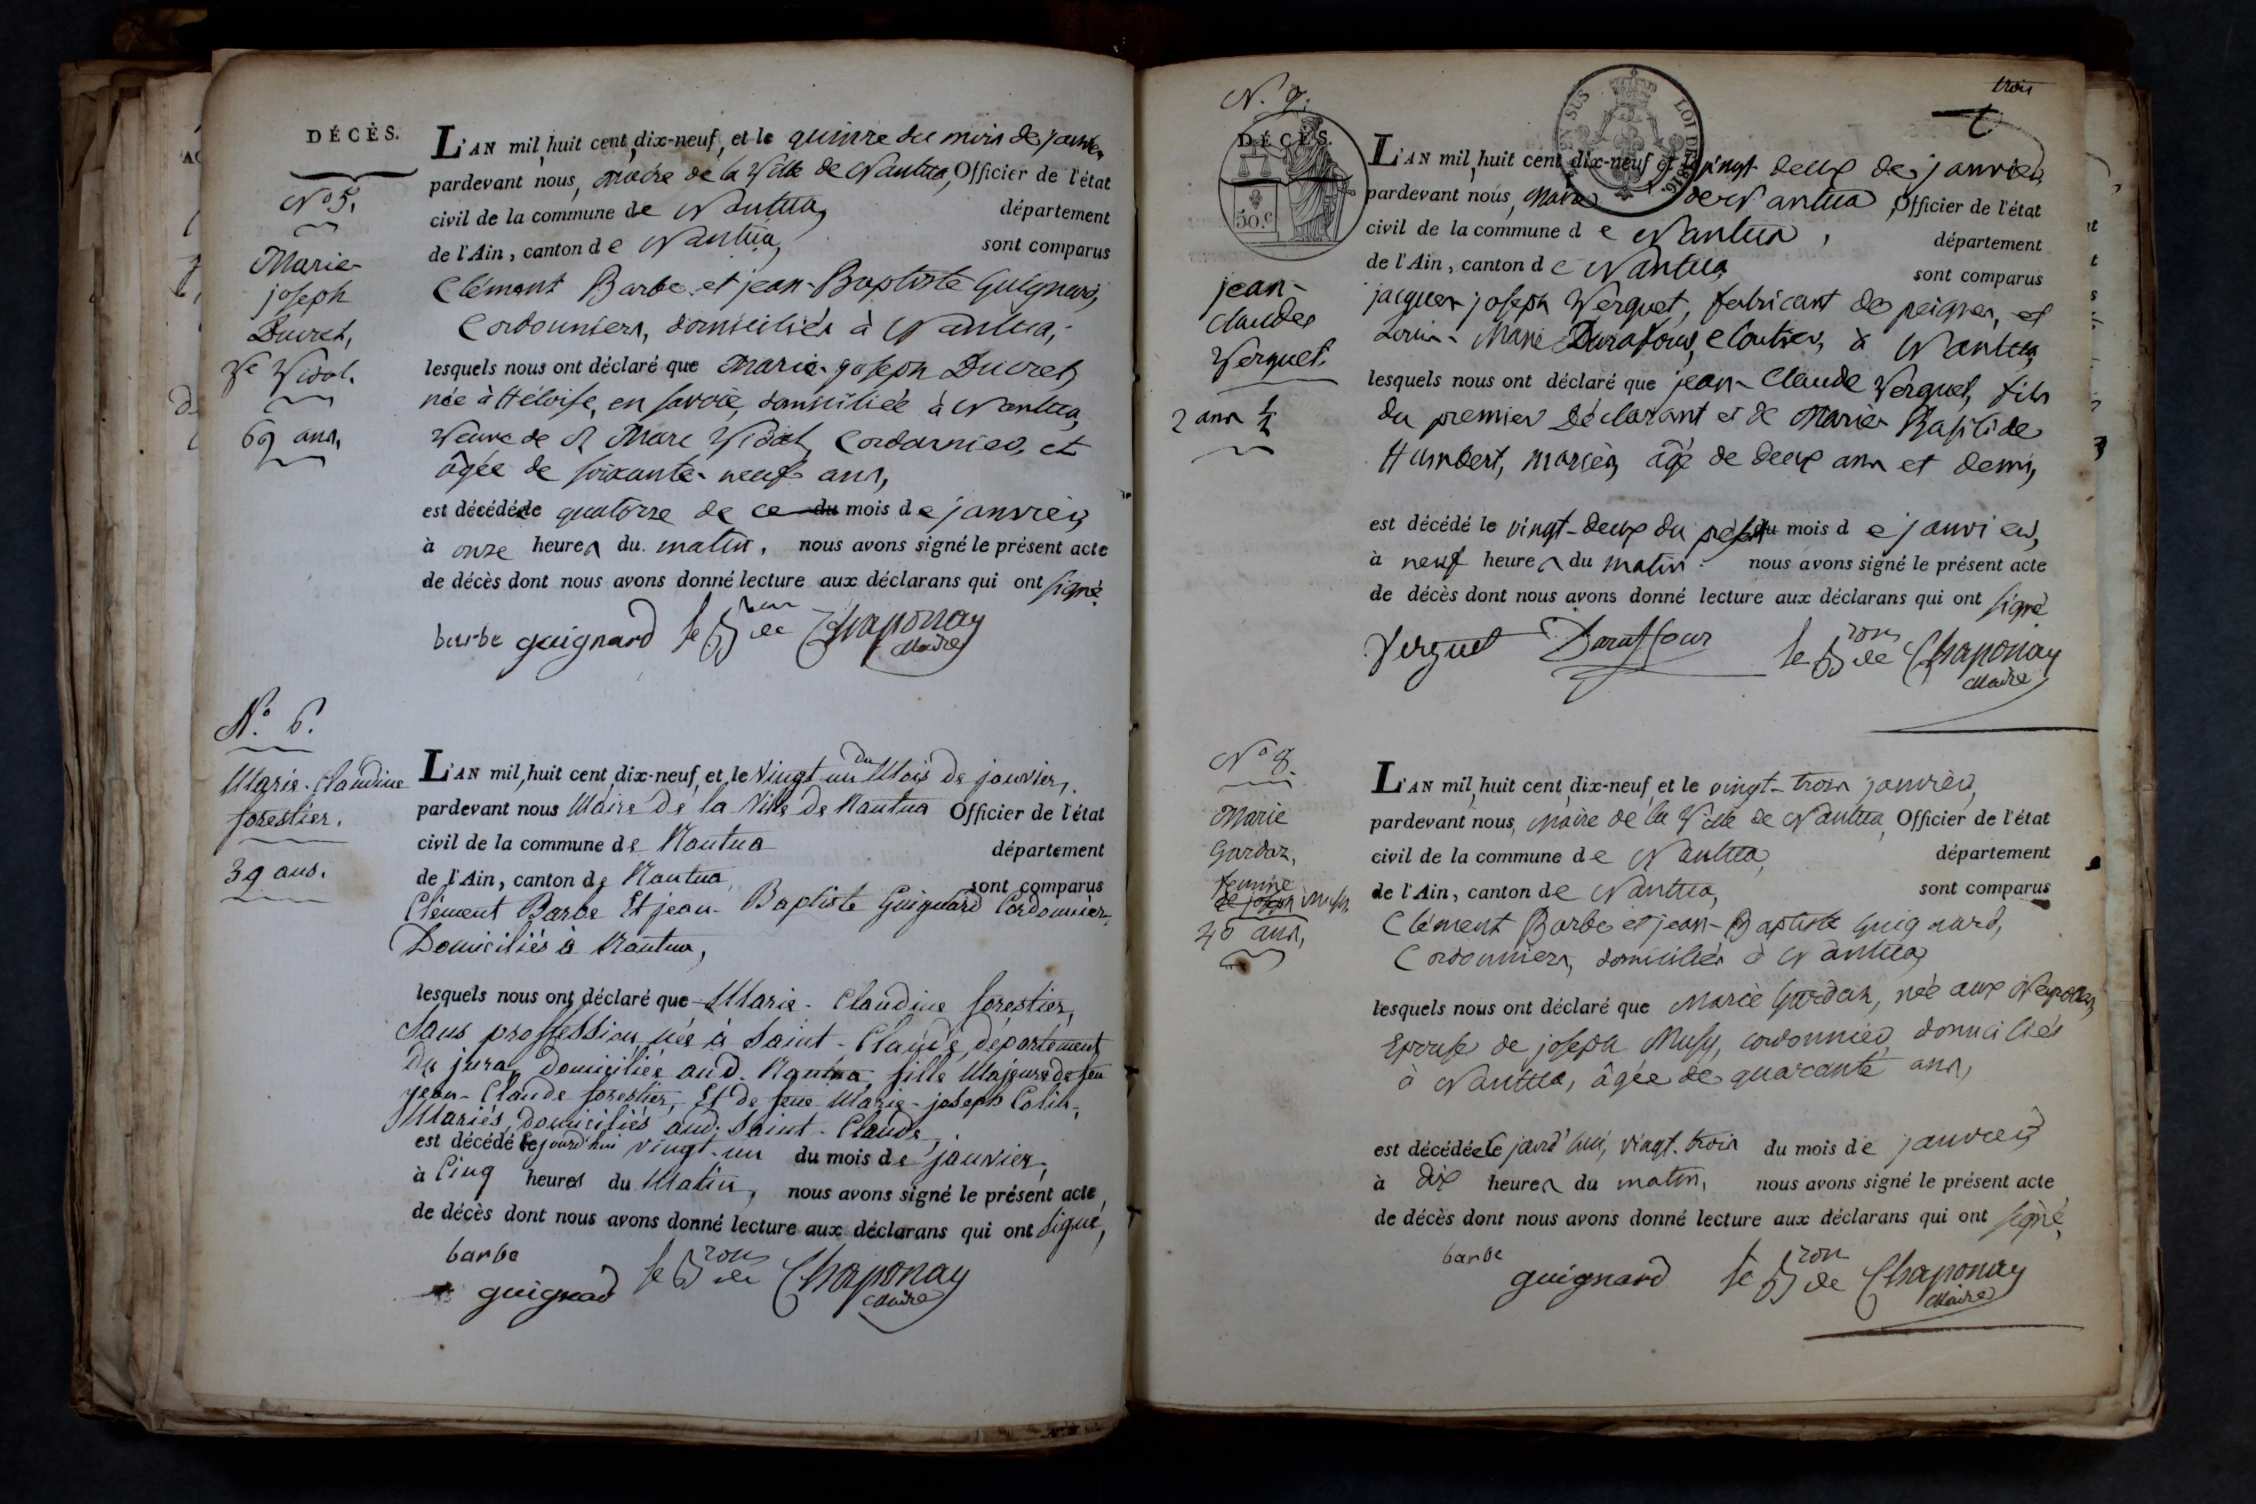 DÉCÈS.
N.º 5.
Marie
joseph
Ducret,
Ve Vidal.
69 ans,
L'AN mil huit cent dix-neuf, et le quinze du mois de janvier
pardevant nous, Maire de la Ville de Nantua, Officier de l'état
civil de la commune de Nantua, département
de l'Ain, canton de Nantua, sont comparus
Clément Barbe et jean-Baptiste Guignard,
Cordonniers, domiciliés à Nantua,
lesquels nous ont déclaré que Marie-joseph Ducret,
née à Héloise, en Savoie, domiciliée à Nantua,
Veuve de Marc Vidal, Cordonnier, et
âgée de soixante-neuf ans,
est décédée le quatorze de ce du mois de janvier,
à onze heures du matin, nous avons signé le présent acte
de décès dont nous avons donné lecture aux déclarans qui ont signé.
barbe guignard le Bon de Chaponay
Maire
N.º 6.
Marie-Claudine
forestier.
39 ans.
L'AN mil huit cent dix-neuf, et le Vingt-un du Mois de janvier,
pardevant nous Maire de la Ville de Nantua Officier de l'état
civil de la commune de Nantua département
de l'Ain, canton de Nantua, sont comparus
Clément Barbe Et jean-Baptiste Guignard Cordonniers,
Domiciliés à Nantua,
lesquels nous ont déclaré que Marie-Claudine forestier,
Sans proffession, née à Saint-Claude, département
du jura, Domiciliée aud. Nantua, fille Majeure de feu
jean-Claude forestier, Et de feue Marie-joseph Colin,
Mariés, Domiciliés aud. Saint-Claude,
est décédé le jourd'hui vingt-un du mois de janvier,
à Cinq heures du Matin, nous avons signé le présent acte
de décès dont nous avons donné lecture aux déclarans qui ont signé,
barbe
guignard le Bon de Chaponay
Maire
trois
N. 7.
DÉCÈS.
50.c
LOI DE 1816.
jean-
Claude
Verguet.
2 ans ½
L'AN mil huit cent dix-neuf et le vingt deux de janvier,
pardevant nous, Maire de Nantua, Officier de l'état
civil de la commune de Nantua, département
de l'Ain, canton de Nantua, sont comparus
jacques joseph Verguet, fabricant de peignes, et
Louis-Marie cloutier, à Nantua,
lesquels nous ont déclaré que jean-Claude Verguet, fils
du premier Déclarant et de Marie Basilide
Humbert, mariés, âgé de deux ans et demi,
est décédé le vingt-deux du présent du mois de janvier,
à neuf heures du matin. nous avons signé le présent acte
de décès dont nous avons donné lecture aux déclarans qui ont signé
Verguet le Bon de Chaponay
Maire
N.º 8.
Marie
Gardaz,
femme
de joseph Musy,
40 ans,
L'AN mil huit cent dix-neuf, et le vingt-trois janvier,
pardevant nous, Maire de la Ville de Nantua, Officier de l'état
civil de la commune de Nantua, département
de l'Ain, canton de Nantua, sont comparus
Clément Barbe et jean-Baptiste Guignard,
Cordonniers, domiciliés à Nantua,
lesquels nous ont déclaré que Marie Gardaz, née aux Neyrolles,
Epouse de joseph Musy, cordonnier, domiciliés
à Nantua, âgée de quarante ans,
est décédée le jourd'hui, vingt-trois du mois de janvier,
à dix heures du matin, nous avons signé le présent acte
de décès dont nous avons donné lecture aux déclarans qui ont signé.
barbe
guignard le Bon de Chaponay
Maire